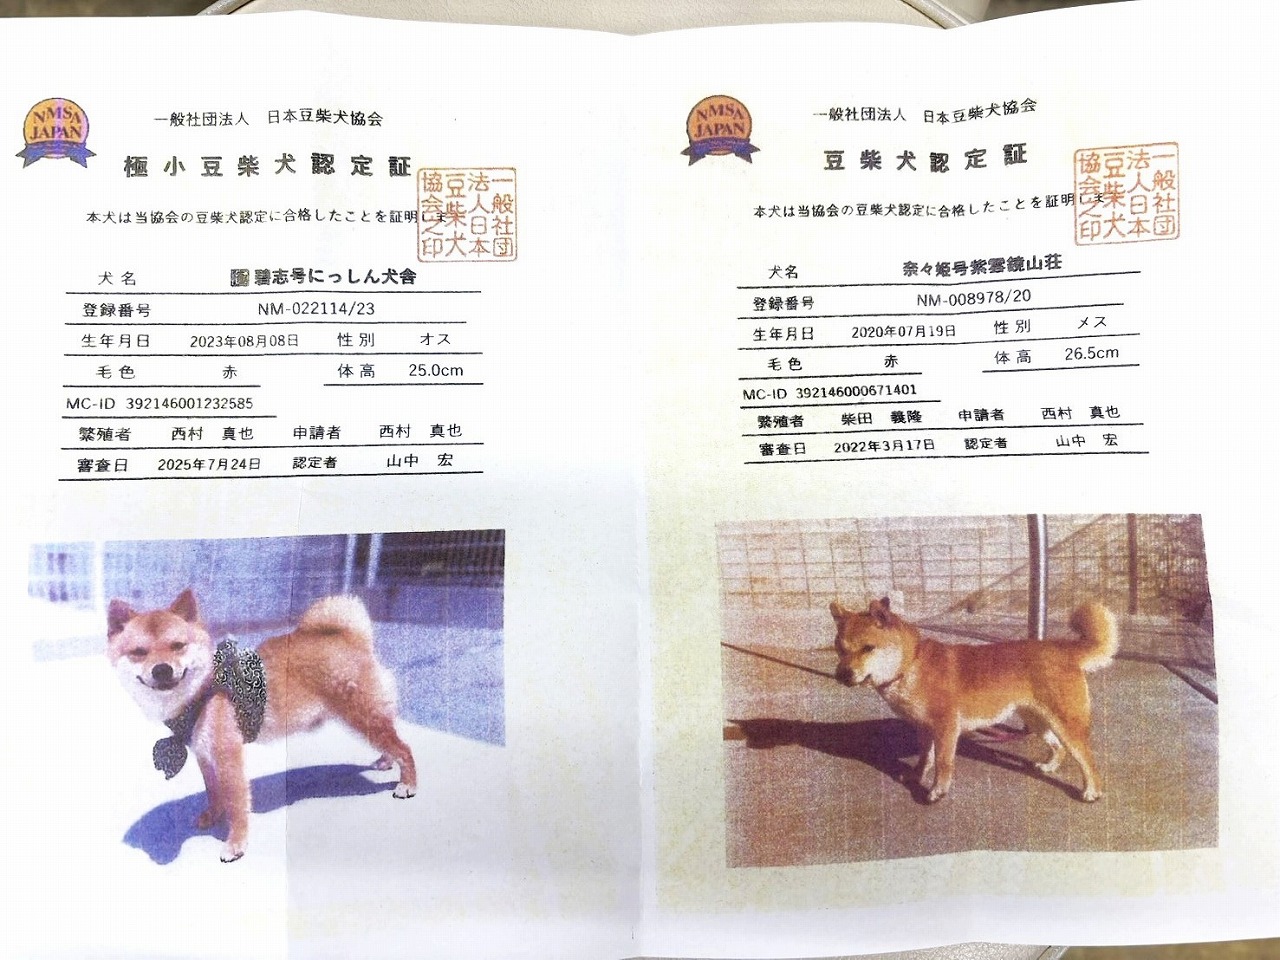 NMSA
JAPAN
一般社団法人 日本豆柴犬協会
極小豆柴犬認定証
本犬は当協会の豆柴犬認定に合格したことを証明しま
一般社団
法人日本
豆柴犬
協会之印
犬名 碧志号にっしん犬舎
登録番号 NM-022114/23
生年月日 2023年08月08日 性別 オス
毛色 赤 体高 25.0cm
MC-ID 392146001232585
繁殖者 西村 真也 申請者 西村 真也
審査日 2025年7月24日 認定者 山中 宏
NMSA
JAPAN
一般社団法人 日本豆柴犬協会
豆柴犬認定証
本犬は当協会の豆柴犬認定に合格したことを証明しま
一般社団
法人日本
豆柴犬
協会之印
犬名 奈々姫号紫雲鏡山荘
登録番号 NM-008978/20
生年月日 2020年07月19日 性別 メス
毛色 赤 体高 26.5cm
MC-ID 392146000671401
繁殖者 柴田 義隆 申請者 西村 真也
審査日 2022年3月17日 認定者 山中 宏